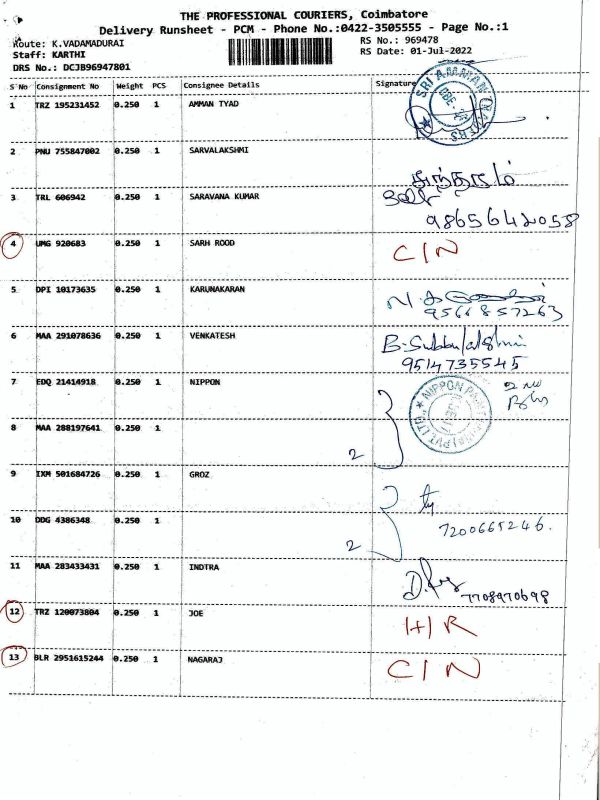 THE PROFESSIONAL COURIERS, Coimbatore
Delivery Runsheet - PCM - Phone No.:0422-3505555 - Page No.:1
Route: K.VADAMADURAI
RS No.: 969478
Staff: KARTHI
RS Date: 01-Jul-2022
DRS No.: DCJB96947801
S No Consignment No Weight PCS Consignee Details Signature
1 TRZ 195231452 0.250 1 AMMAN TYAD
SRI AMMAN TRADERS
2 PNU 755847002 0.250 1 SARVALAKSHMI
3 TRL 606942 0.250 1 SARAVANA KUMAR
9865642058
4 UMG 920683 0.250 1 SARH ROOD C/N
5 DPI 10173635 0.250 1 KARUNAKARAN
9566857263
6 MAA 291078636 0.250 1 VENKATESH B-Subbulakshmi
9514735545
7 EDQ 21414918 0.250 1 NIPPON
NIPPON PAINT PVT LTD.
8 MAA 288197641 0.250 1
2
9 IXM 501684726 0.250 1 GROZ
10 DDG 4386348 0.250 1 7200665246.
2
11 MAA 283433431 0.250 1 INDTRA
7708970698
12 TRZ 120073804 0.250 1 JOE H/R
13 BLR 2951615244 0.250 1 NAGARAJ C/N